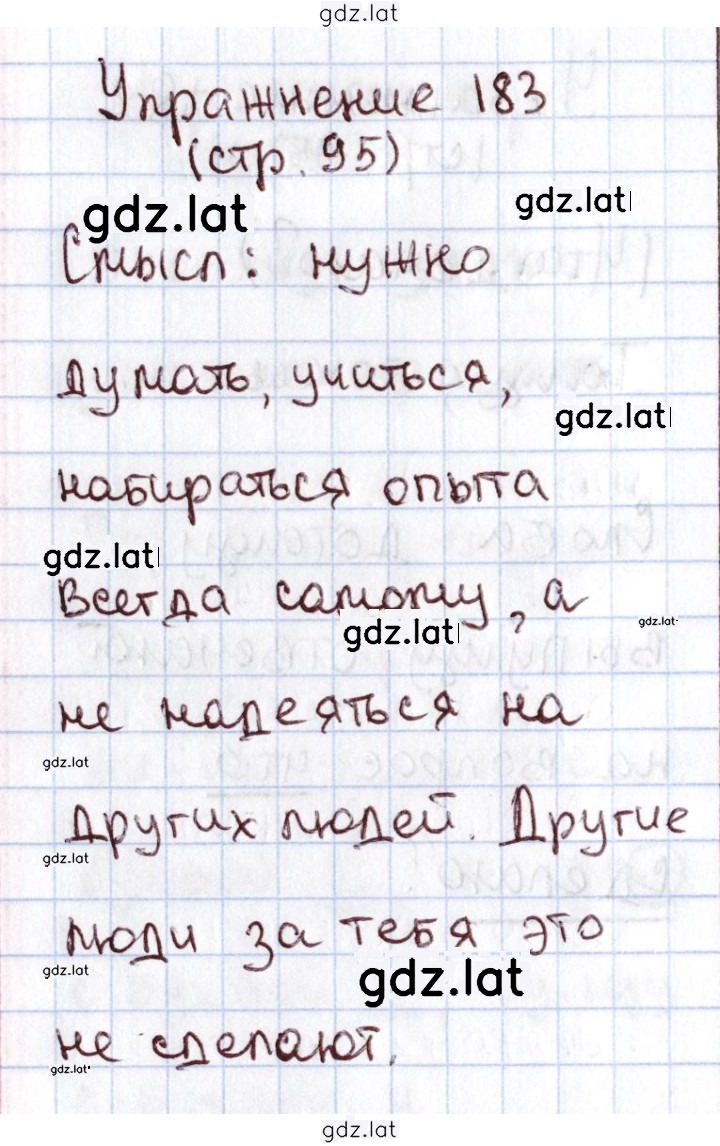 gdz.lat
Упражнение 183
(стр. 95)
gdz.lat
gdz.lat
Смысл: нужно
думать, учиться,
gdz.lat
набираться опыта
gdz.lat
всегда самому, а
gdz.lat
gdz.lat
не надеяться на
gdz.lat
других людей. Другие
gdz.lat
люди за тебя это
gdz.lat
gdz.lat
не сделают.
gdz.lat
gdz.lat